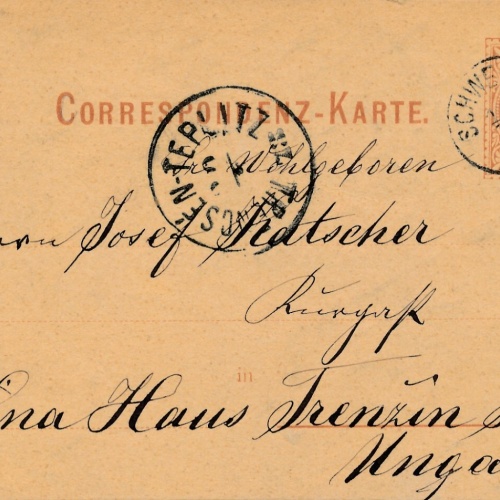 CORRESPONDENZ-KARTE.
SCHWE
TRENCSÉN-TEPLITZ
Wohlgeboren
rrn Josef Katscher
Kurgast
in
ina Haus Trenzin
Unga